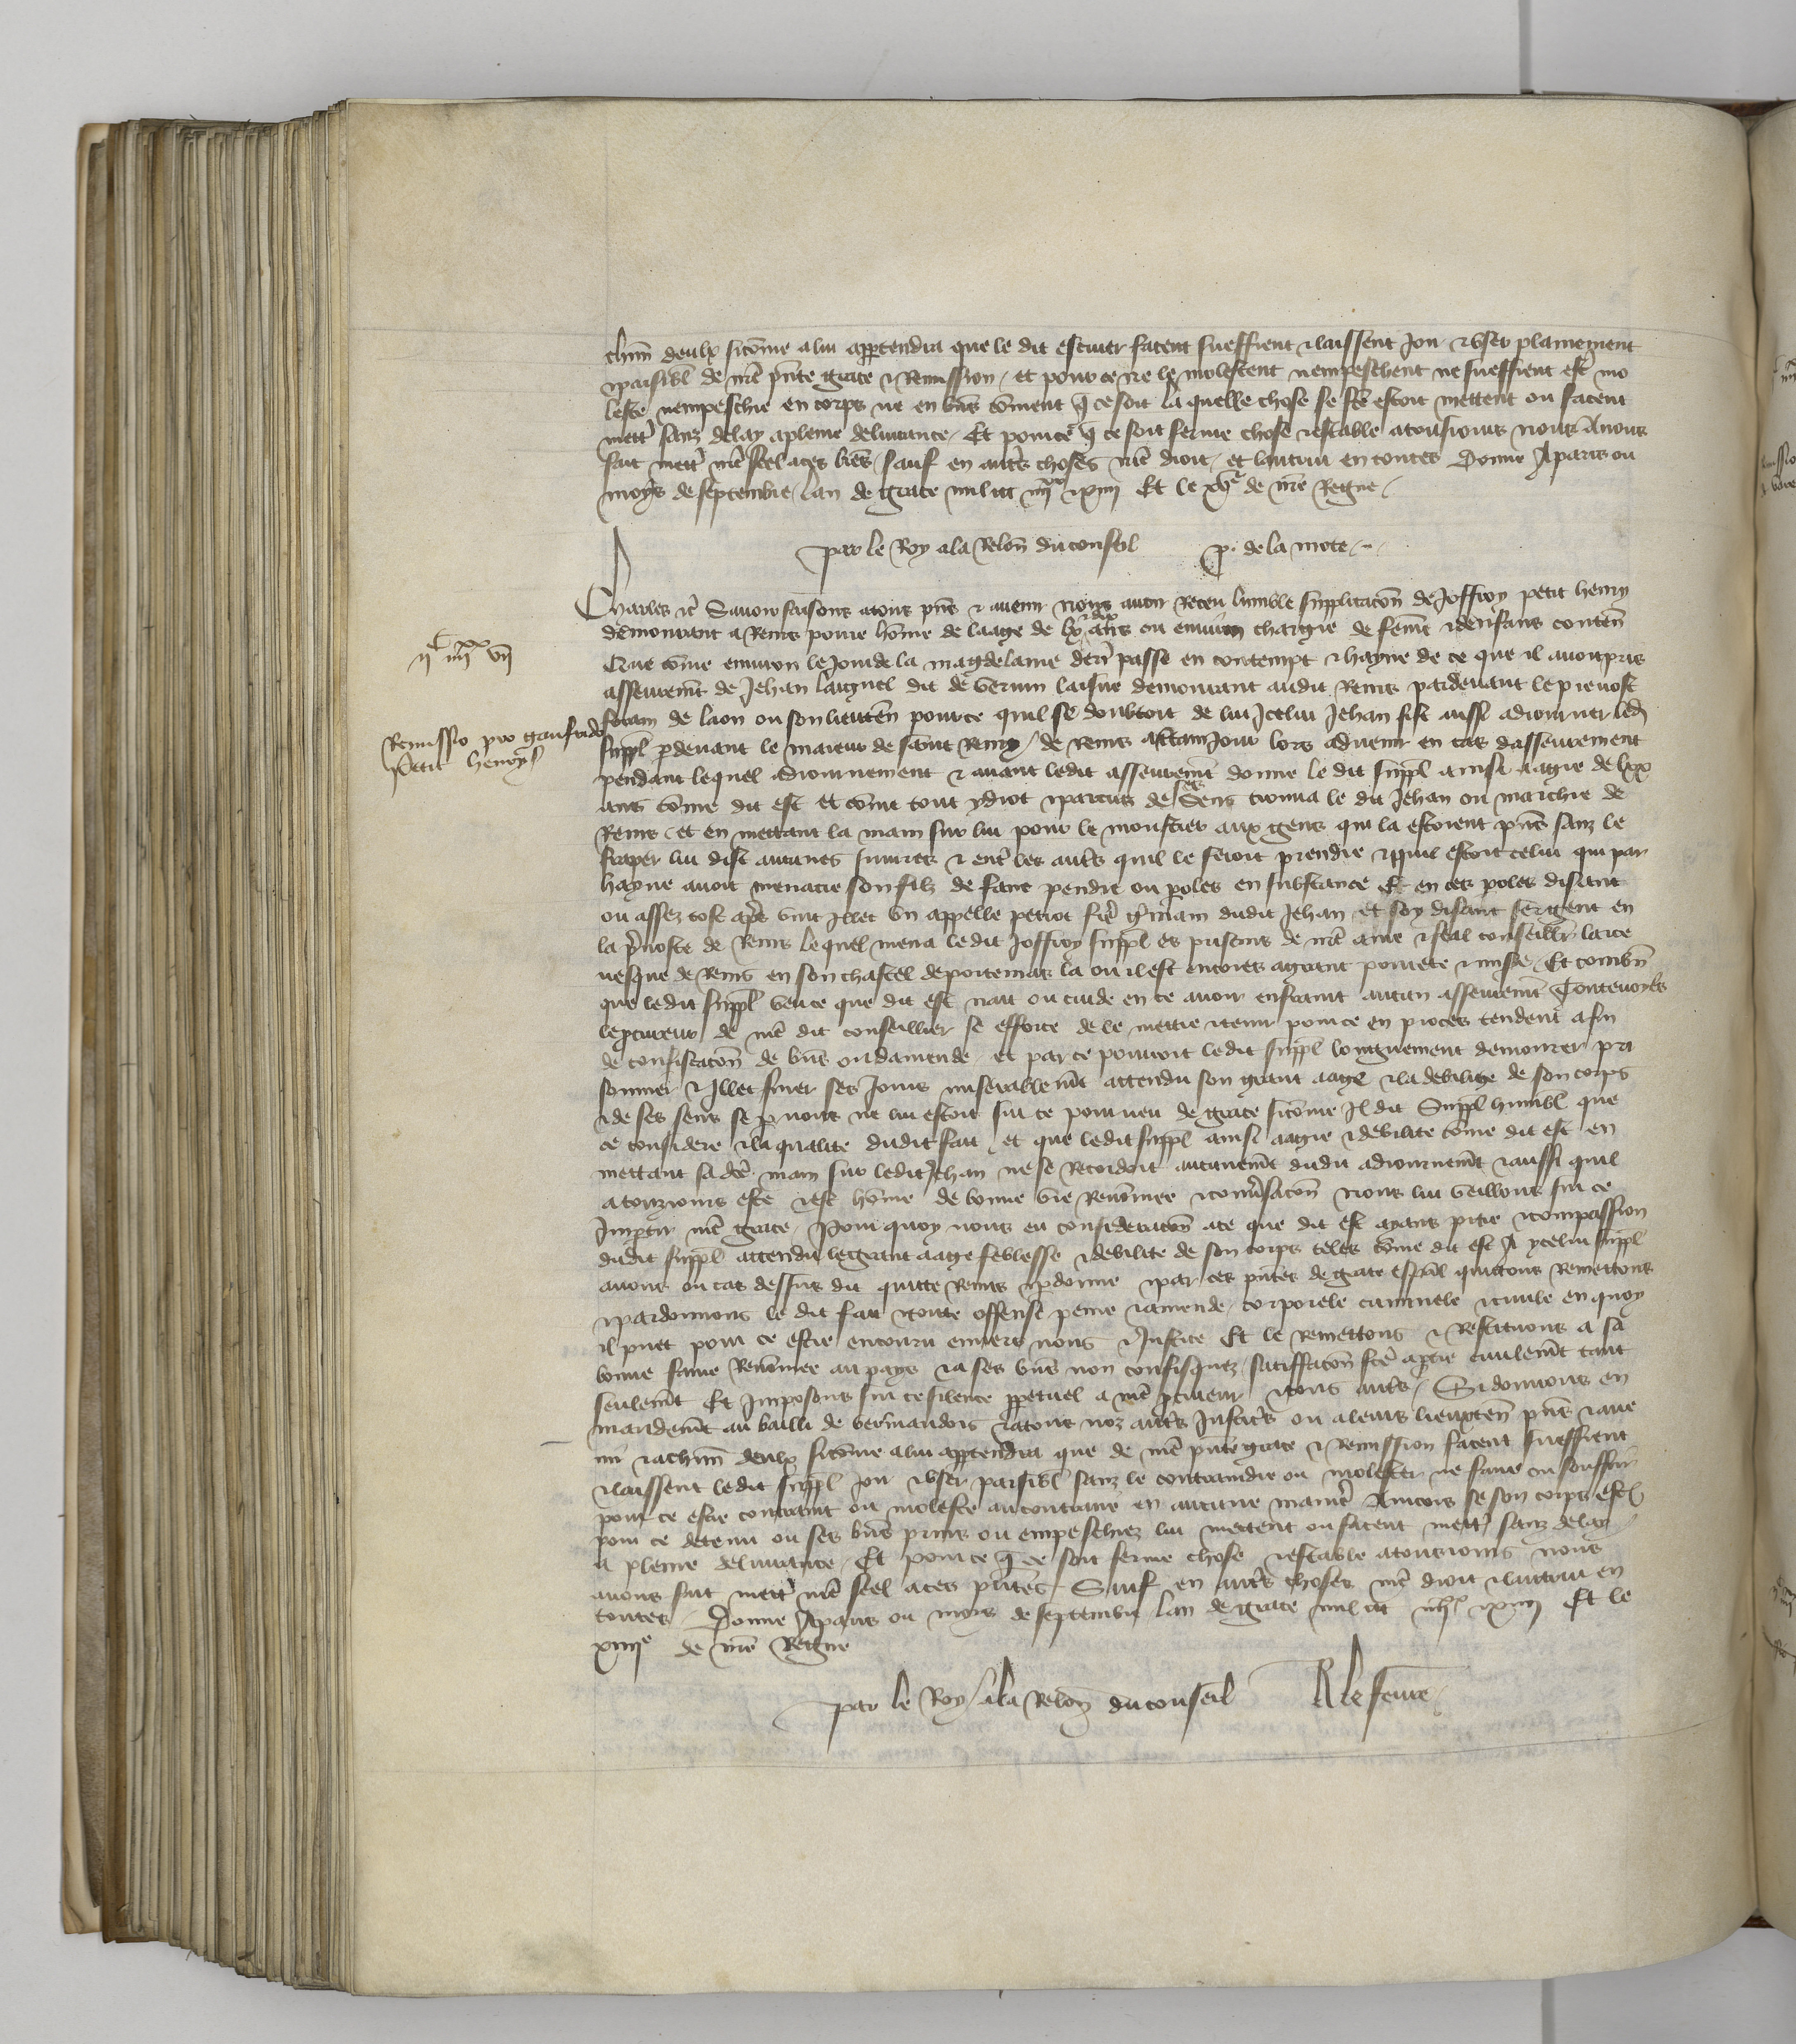 chũn deulx sicõme a lui appartendra que le dit escuier facent sueffrent & laissent joir & user plainement
& paisibl de nr̃e p̃nte grace & Remission / et pour ce ne le molestent nempeschent ne sueffrent estr̃ mo
leste nempeschie en corps ne en biẽs cõment q̃ ce soit la quelle chose se fc̃e estoit mettent ou facent
mettr̃ sanz delay a pleine delivrance / Et pour ce q̃ ce soit ferme chose & estable a tousiours nous Avons
fait mettr̃ nr̃e seel a ces lr̃es / sauf en autr̃s choses nr̃e droit / et lautrui en toutes Donne A paris ou
moys de septembre / lan de grace mil ccc iiijxx & xiiij Et le xve de nr̃e Regne /
par le Roy a la Relõn du conseil p. de la mote
Charles &c̃ Savoir faisons a tous p̃ns & avenir nous avoir Receu lumble supplicacõn de Joffroy petit henry
demourant a Reins povre hõme de laage de lxx ans ou environ chargie de fem̃e & denfans conteñ
Que cõme environ le jour de la magdelaine derr̃ passe en contempt & hayne de ce que il avoit pris
asseurem̃t de Jehan laignel dit de laisne demourant audit Reins pardevant le prevost
forain de laon ou son lieuteñ pour ce quil se doubtoit de lui Icelui Jehan fist aussi adiourner led̃
suppl̃ p̃devant le maieur de saint Remy / de Reins a certain jour lors advenir en cas dasseurement
pendant lequel adiournement & avant ledit asseurem̃t donne le dit suppl̃ ainsi aagie de lxx
ans cõme dit est et cõme tout ydiot & parcus de ses sens trouva le dit Jehan ou marchie de
Reins / et en mettant la main sur lui pour le monstrer aux gens qui la estoient p̃ns sanz le
fraper lui dist aucunes iniures & entr̃ les autr̃s quil le feroit prendre & quil estoit celui qui par
hayne avoit menacie son filz de faire pendre ou p̃oles en substance Et en ces p̃oles disant
ou assez tost apr̃s vint illec un appelle petrot fr̃e g̃main dudit Jehan et soy disant sergent en
la p̃voste de Reins lequel mena ledit Joffroy suppl̃ es prisons de nr̃e ame & feal conseillr̃ larce
vesque de Reins en son chastel de portemars la ou il est encores a grant povrete & mis̃e / Et combñ
que ledit suppl̃ veu ce que dit est nait ou cuide en ce avoir enfraint aucun asseurem̃t Toutevoyes
le p̃cureur de nr̃e dit conseillier se efforce de le mettre & tenir pour ce en proces tendent a fin
de confiscacõn de biẽs ou damende / et par ce pourroit ledit suppl̃ longuement demourer pri
sonnier & illec finer ses jours miserablem̃t attendu son grant aage & la debilite de son corps
& de ses sens se p̃ nous ne lui estoit sur ce pourveu de grace sicõme il dit Suppl̃ humbl̃ que
ce considere & la qualite dudit fait / et que ledit suppl̃ ainsi aagie & debilite cõme dit est en
mettant sa dc̃e main sur ledit Jehan ne se Recordoit aucunem̃t dudit adiournem̃t & aussi quil
a touzjours este & est hõme de bonne vie Renõmee & cõnṽsacõn nous lui veillons sur ce
Imp̃tir nr̃e grace / Pour quoy nous en consideracõn a ce que dit est ayans pitie & compassion
dudit suppl̃ attendu le grant aage feblesse & debilite de son corps teles cõme dit est A ycelui suppl̃
avons ou cas dessus dit quitte Remis & p̃donne & par ces p̃ntes de grace esp̃al quittons Remettons
& pardonnons le dit fait & toute offense peine & amende / corporele criminele & civile en quoy
il puet pour ce estre encouru envers nous & Justice Et le Remettons & Restituons a sa
bonne fame Renõmee au pays & a ses biẽs non confisquez / satiffacõn fc̃e a p̃tie civilem̃t tant
seulem̃t Et Imposons sur ce silence p̃petuel a nr̃e p̃cureur & tous autr̃s / Si donnons en
mandem̃t au bailli de vermandois & a tous noz autr̃s Justic̃s ou a leurs lieuxteñ p̃ns & ave
nir & a chũn deulx sicõme a lui appartendra que de nr̃e p̃nte grace & Remission facent sueffrent
& laissent ledit suppl̃ joir & user paisibl̃ sanz le contraindre ou molester ne faire ou souffrir
pour ce estre contraint ou moleste au contraire en aucune manier̃ Aincois se son corps est
pour ce detenu ou ses biẽs prins ou empeschiez lui mettent ou facent mettr̃ sanz delay
a pleine delivrance / Et pour ce q̃ ce soit ferme chose & estable a tousjours nous
avons fait mettr̃ nr̃e seel a ces p̃ntes / Sauf en autr̃s choses nr̃e droit & lautrui en
toutes / Donne A paris ou mois de septembre / lan de grace mil ccc iiijxx & xiiij Et le
xiiije de nr̃e Regne
par le Roy / a la Relõn du conseil R le fevre
ijc iiijxx vij
Remissio pro gaufrido
petit henry